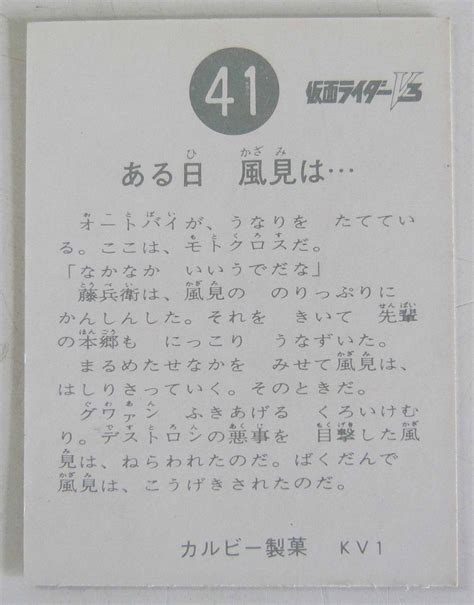 41
仮面ライダーV3
ある日　風見は…
オートバイが、うなりを　たててい
る。ここは、モトクロスだ。
「なかなか　いいうでだな」
藤兵衛は、風見の　のりっぷりに
かんしんした。それを　きいて　先輩
の本郷も　にっこり　うなずいた。
まるめたせなかを　みせて風見は、
はしりさっていく。そのときだ。
グワァン　ふきあげる　くろいけむ
り。デストロンの悪事を　目撃した風
見は、ねらわれたのだ。ばくだんで
風見は、こうげきされたのだ。
カルビー製菓　KV1